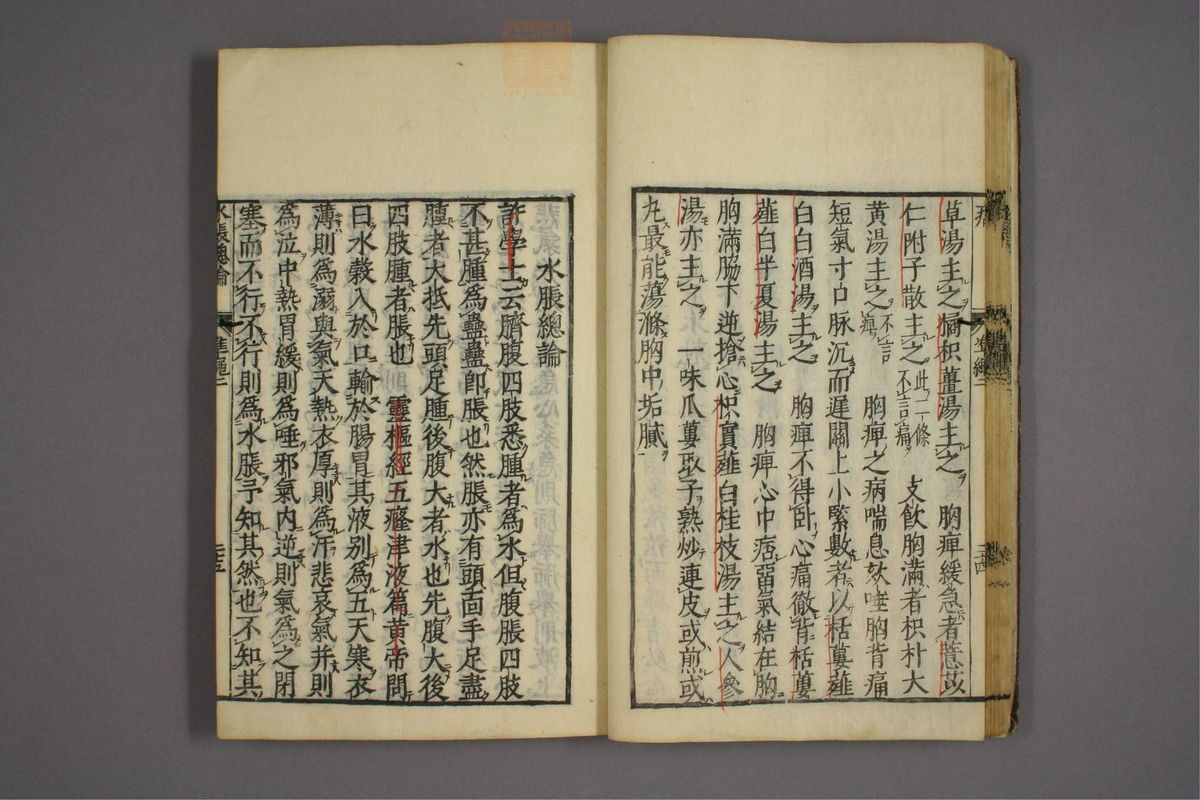 草湯主之桶枳薑湯主之　胸痺緩急者薏苡
仁附子散主之此二條不言痛　支飲胸滿者枳朴大
黃湯主之不言痺　胸痺之病喘息欬唾胸背痛
短氣寸口脉沉而遲關上小緊數者以栝蔞薤
白白酒湯主之　胸痺不得卧心痛徹背栝蔞
薤白半夏湯主之　胸痺心中痞留氣結在胸
胸滿脇下逆搶心枳實薤白桂枝湯主之人參
湯亦主之　一味瓜蔞取子熟炒連皮或煎或
丸最能蕩滌胸中垢膩
水脹總論
許學士云臍腹四肢悉腫者為水但腹脹四肢
不甚腫為蠱蠱即脹也然脹亦有頭面手足盡
腫者大抵先頭足腫後腹大者水也先腹大後
四肢腫者脹也　靈樞經五癃津液篇黃帝問
曰水穀入於口輸於腸胃其液别為五天寒衣
薄則為溺與氣天熱衣厚則為汗悲哀氣并則
為泣中熱胃緩則為唾邪氣内逆則氣為之閉
塞而不行不行則為水脹予知其然也不知其
水脹總論　準繩二　二十五